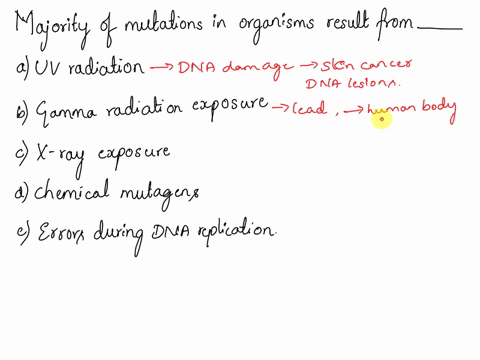 Majority of mutations in organisms result from _____
a) UV radiation → DNA damage → skin cancer
DNA lesions.
b) Gamma radiation exposure → lead, → human body
c) X-ray exposure
d) Chemical mutagens
e) Errors during DNA replication.